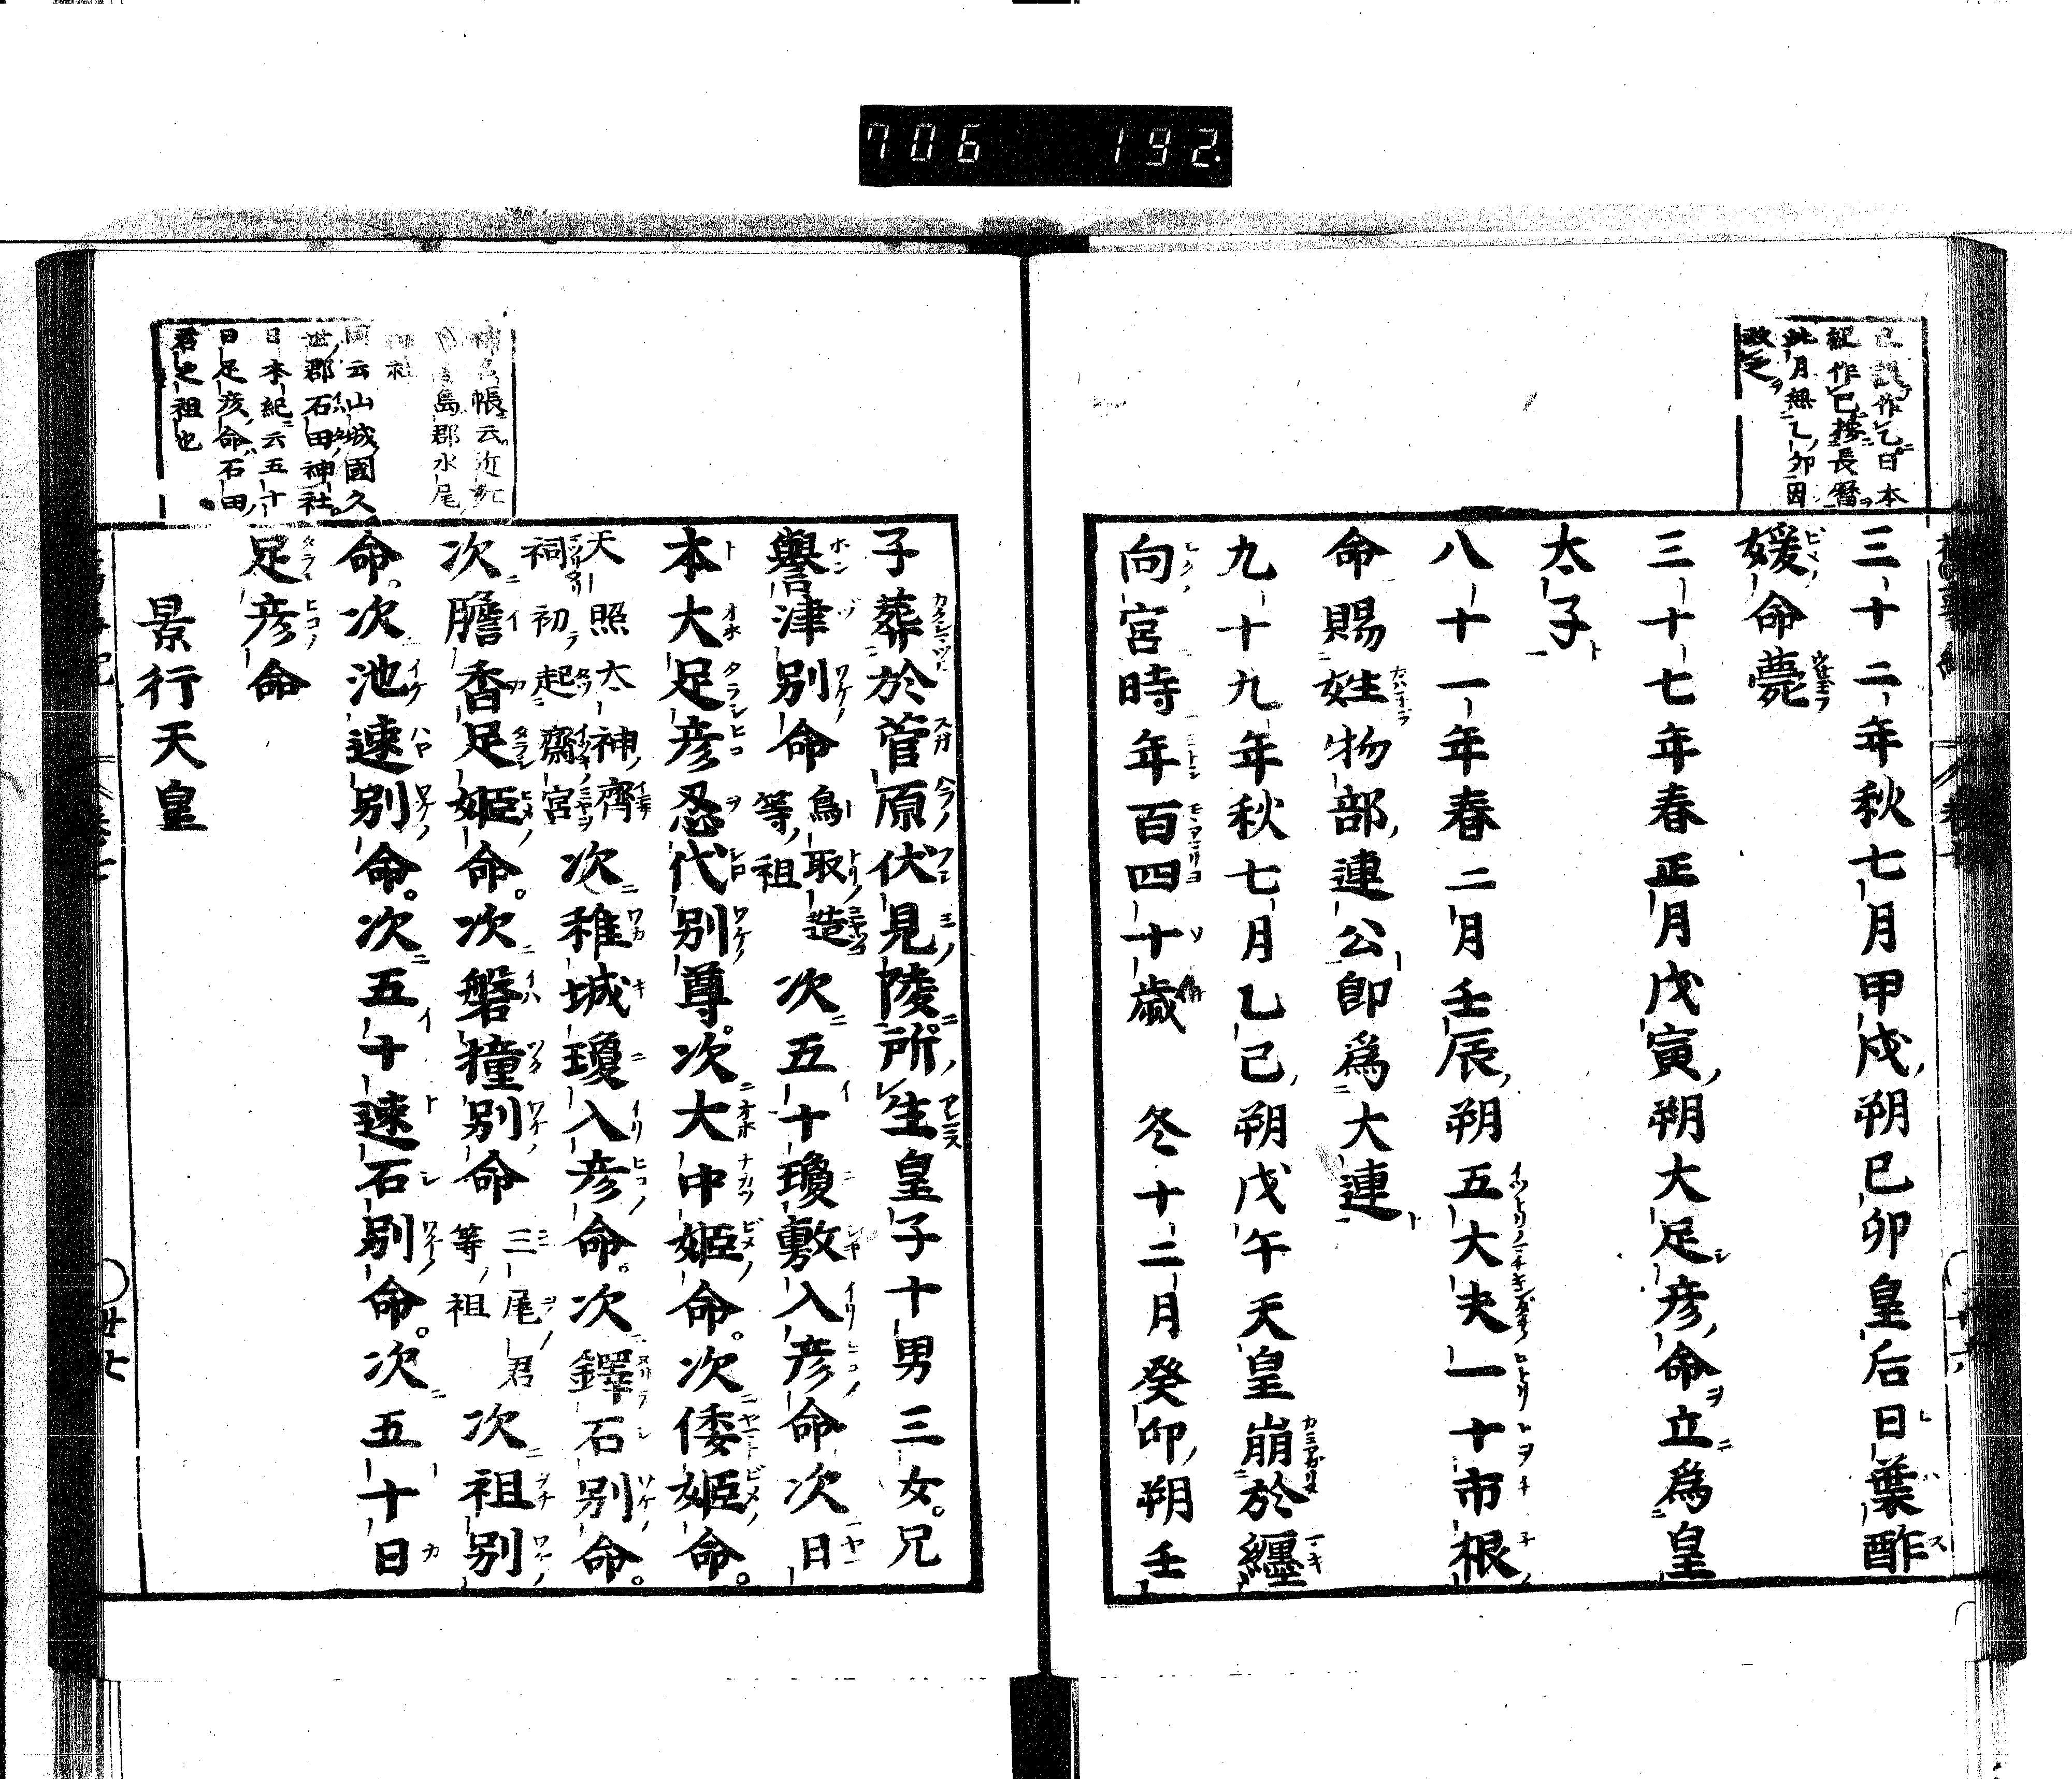 706 192
己誤作乞日本
紀作已按長曆
此月無乙卯因
改之
三十二年秋七月甲戌朔己卯皇后日葉酢
媛命薨
三十七年春正月戊寅朔大足彥命立為皇
太子
八十一年春二月壬辰朔五大夫一十市根
命賜姓物部連公即為大連
九十九年秋七月乙已朔戊午天皇崩於纏
向宮時年百四十歲 冬十二月癸卯朔壬
帳云近江
島郡水尾
神社
同云山城國久
世郡石田神社
日本紀云五十
日足彥命石田
君之祖也
子葬於菅原伏見陵所生皇子十男三女兄
譽津別命鳥取造等祖次五十瓊敷入彥命次日
本大足彥忍代別尊次大中姬命次倭姬命
天照太神齊祠初起齋宮次稚城瓊入彥命次鐸石別命
次膽香足姬命次磐撞別命三尾君等祖次祖別
命次池速別命次五十速石別命次五十日
足彥命
景行天皇
廿七